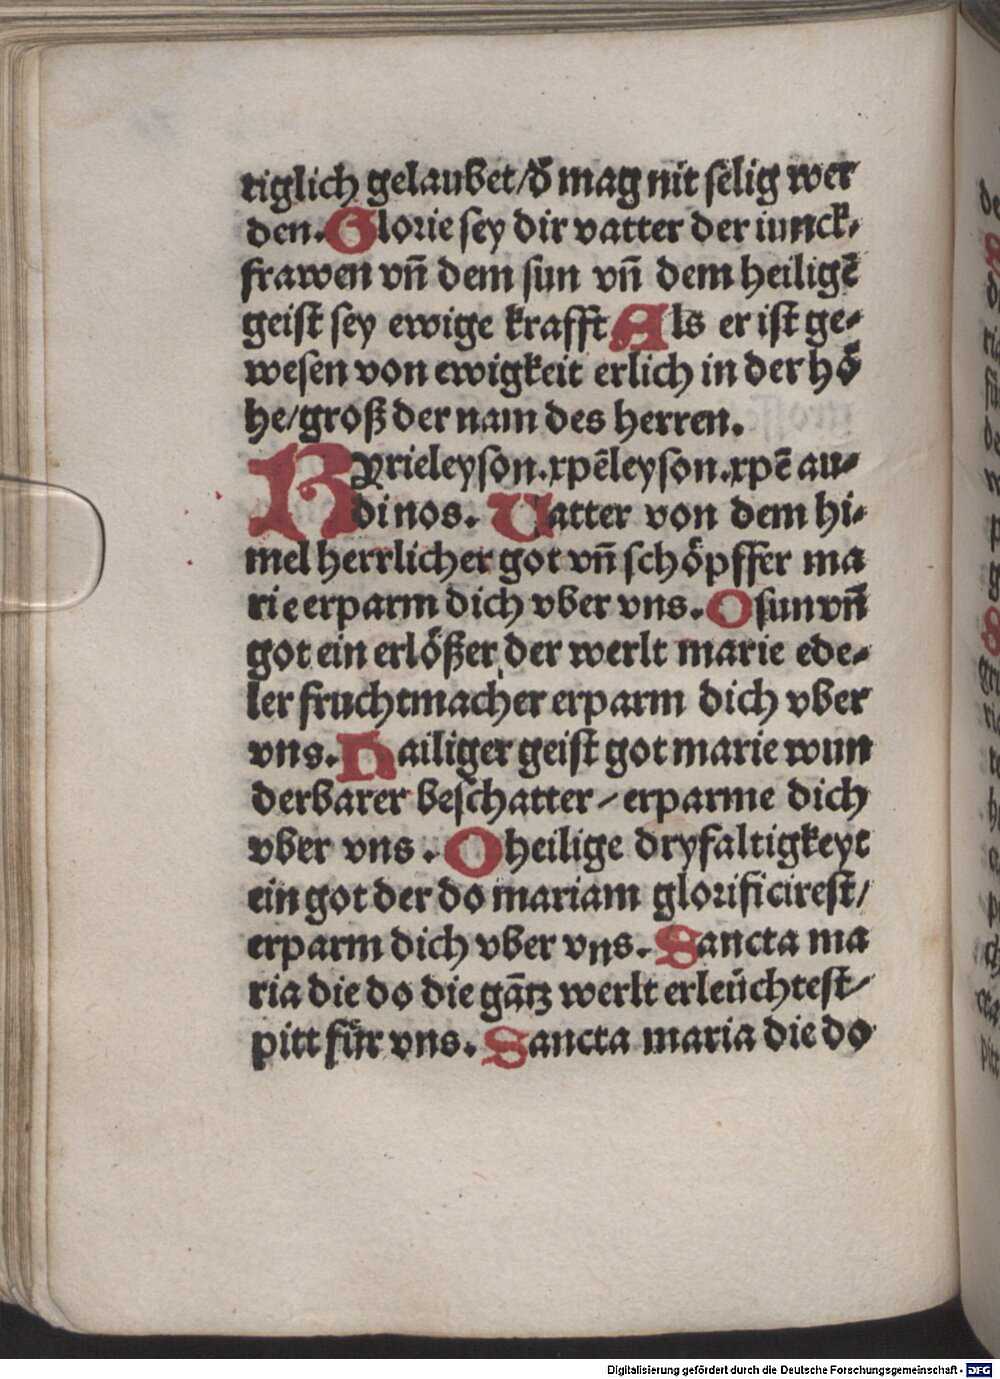 tiglich gelaubet/d̄ mag nit selig wer
den. Glorie sey dir vatter der iunck⸗
frawen vn̄ dem sun vn̄ dem heiligē
geist sey ewige krafft Als er ist ge⸗
wesen von ewigkeit erlich in der hö
he/groß der nam des herren.
Kyrieleyson.xp̄eleyson.xp̄e au⸗
dinos. Uatter von dem hi⸗
mel herrlicher got vn̄ schöpffer ma
rie erparm dich vber vns. O sun vn̄
got ein erlößer der werlt marie ede⸗
ler fruchtmacher erparm dich vber
vns. Hailiger geist got marie wun
derbarer beschatter/erparme dich
vber vns. O heilige dryfaltigkeyt
ein got der do mariam glorificirest/
erparm dich vber vns. Sancta ma
ria die do die gātz werlt erleüchtest/
pitt für vns. Sancta maria die do
Digitalisierung gefördert durch die Deutsche Forschungsgemeinschaft - DFG